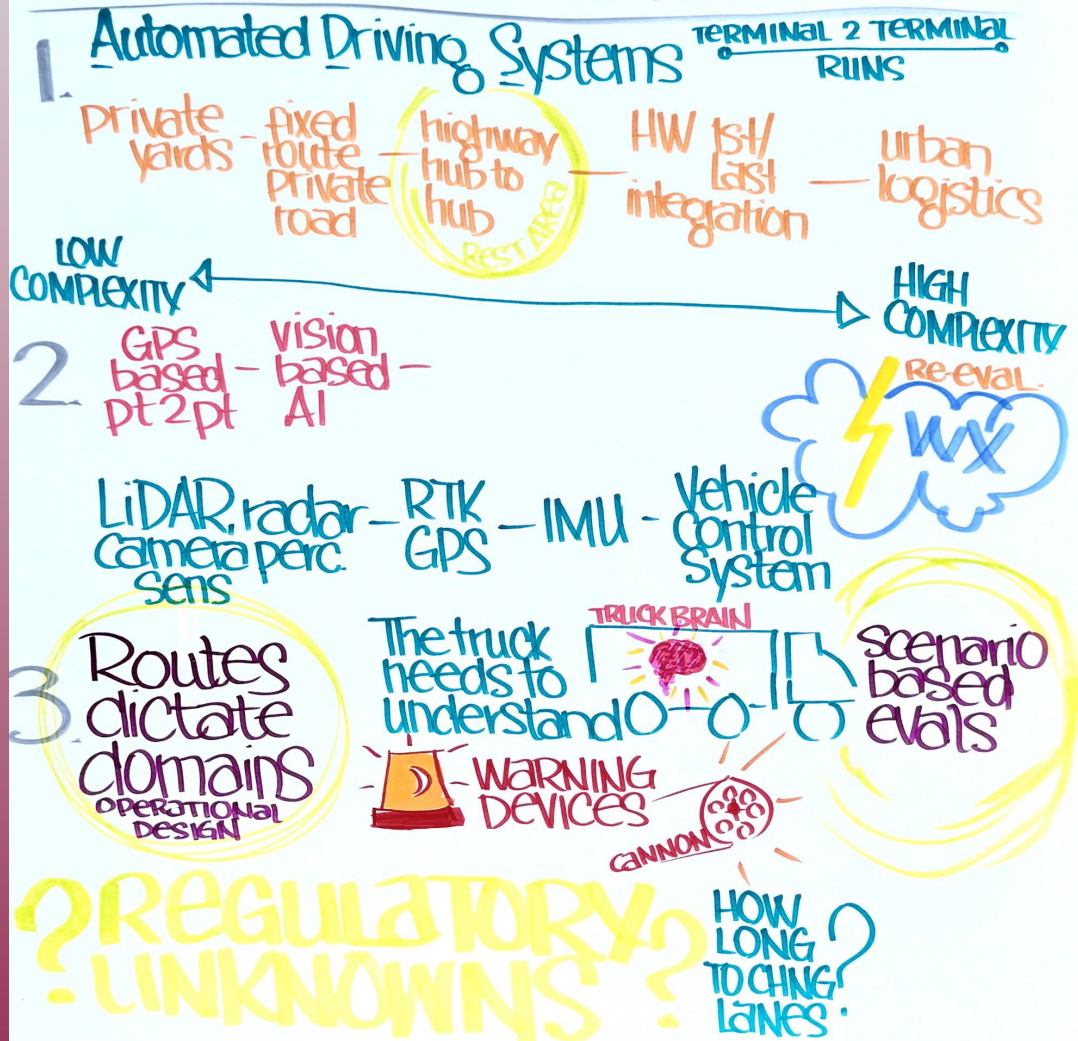 1.
Automated Driving Systems
TERMINAL 2 TERMINAL
RUNS
private
yards -
fixed
route
private
road
—
highway
hub to
hub
REST AREA
—
HW 1st/
Last
integration
—
urban
logistics
LOW
COMPLEXITY
HIGH
COMPLEXITY
2.
GPS
based -
pt2pt
vision
based -
AI
RE-eval.
WX
LiDAR, radar
camera perc.
sens
— RTK
GPS
— IMU -
Vehicle
Control
System
3.
Routes
dictate
domains
OPERATIONAL
DESIGN
The truck
needs to
understand
TRUCK BRAIN
scenario
based
evals
WARNING
DEVICES
CANNON
? REGULATORY
UNKNOWNS ?
HOW
LONG
TO CHNG
LANES ?